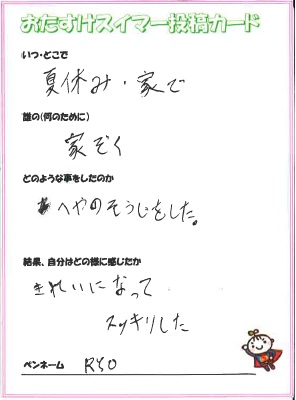 おたすけスイマー投稿カード
いつ・どこで
夏休み・家で
誰の(何のために)
家ぞく
どのような事をしたのか
へやのそうじをした。
結果、自分はどの様に感じたか
きれいになって
スッキリした
ペンネーム RYO